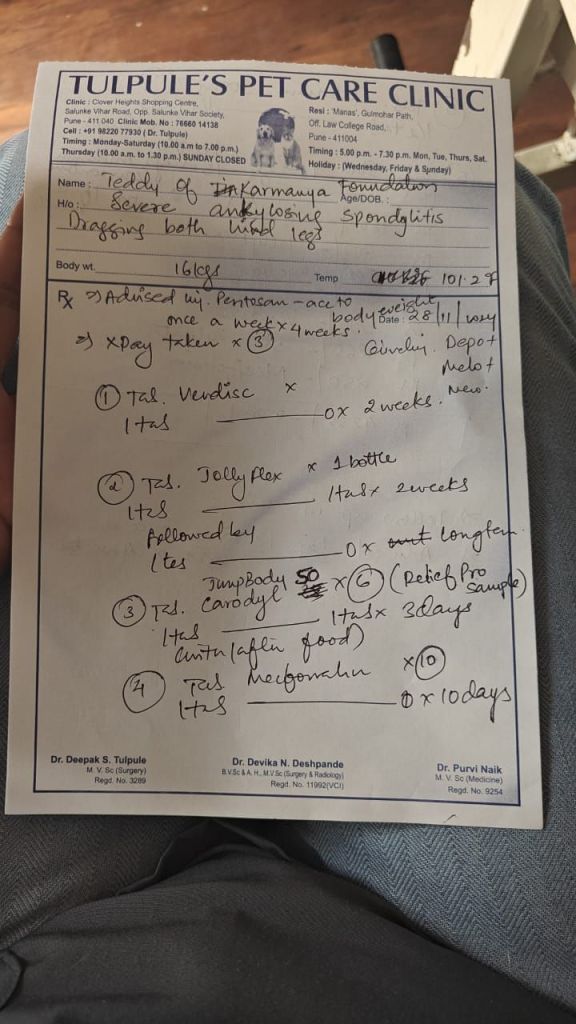 TULPULE'S PET CARE CLINIC
Clinic : Clover Heights Shopping Centre,
Salunke Vihar Road, Opp. Salunke Vihar Society,
Pune - 411 040 Clinic Mob. No : 76660 14138
Cell : +91 98220 77930 ( Dr. Tulpule)
Timing : Monday-Saturday (10.00 a.m to 7.00 p.m.)
Thursday (10.00 a.m. to 1.30 p.m.) SUNDAY CLOSED
Resi : 'Manas', Gulmohar Path,
Off. Law College Road,
Pune - 411004
Timing : 5.00 p.m. - 7.30 p.m. Mon, Tue, Thurs, Sat.
Holiday : (Wednesday, Friday & Sunday)
Name : Teddy of Karmanya Foundation
Age/DOB. :
H/o : Severe ankylosing spondylitis
Dragging both hind legs
Body wt. 16kgs Temp 101.2F
Rx => Advised inj. Pentosan - acc to
body weight
once a week x 4 weeks. Date : 28/11/
=> XRay taken x 3
Depot
Melo +
① Tab. Verdisc x
1 tab ———— 0 x 2 weeks.
② Tab. JollyFlex x 1 bottle
1tab ———— 1tab x 2 weeks
followed by
1 tab ———— 0 x longterm.
JumpBody 50 x ⑥ (Relief Pro
sample)
③ Tab. Carodyl
1tab ———— 1tab x 3 days
(after food)
④ Tab x ⑩
1tab ———— 0 x 10 days
Dr. Deepak S. Tulpule
M. V. Sc (Surgery)
Regd. No. 3289
Dr. Devika N. Deshpande
B.V.Sc & A. H., M.V.Sc (Surgery & Radiology)
Regd. No. 11992(VCI)
Dr. Purvi Naik
M. V. Sc (Medicine)
Regd. No. 9254